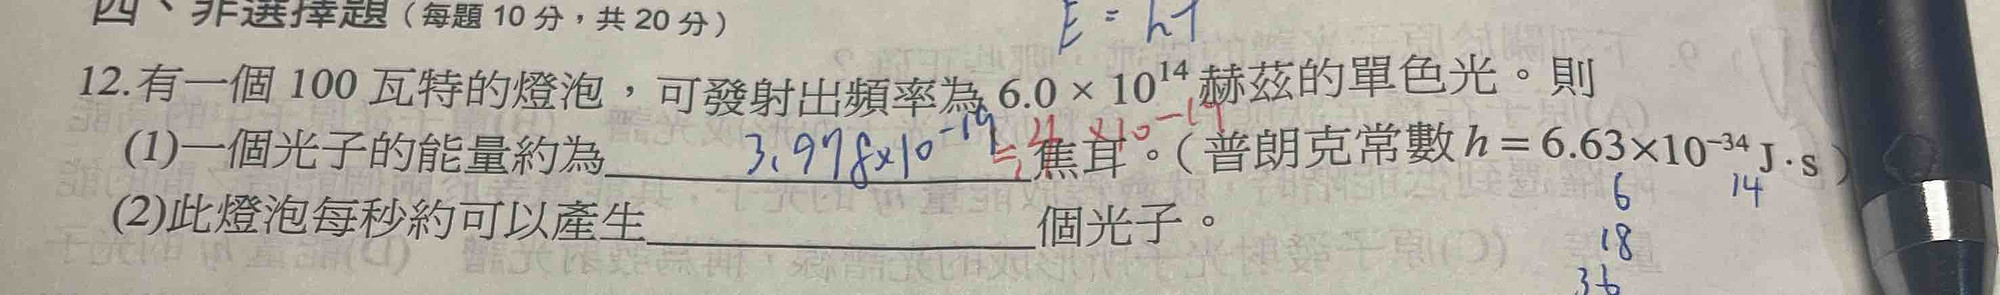 四、非選擇題（每題 10 分，共 20 分）
E = hf
12.有一個 100 瓦特的燈泡，可發射出頻率為 6.0 × 10¹⁴ 赫茲的單色光。則
(1)一個光子的能量約為 3.978×10⁻¹⁹ ≒ 4 ×10⁻¹⁹ 焦耳。（普朗克常數 h = 6.63×10⁻³⁴ J · s）
6 14
(2)此燈泡每秒約可以產生＿＿＿＿＿＿個光子。
18
36